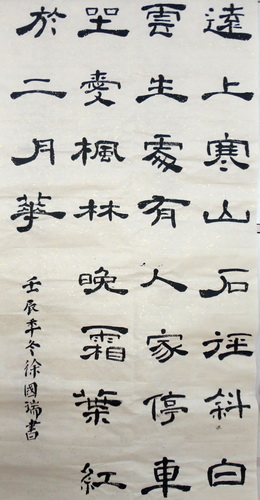 遠上寒山石徑斜白
雲生處有人家停車
坐愛楓林晚霜葉紅
於二月華
壬辰年冬徐國瑞書